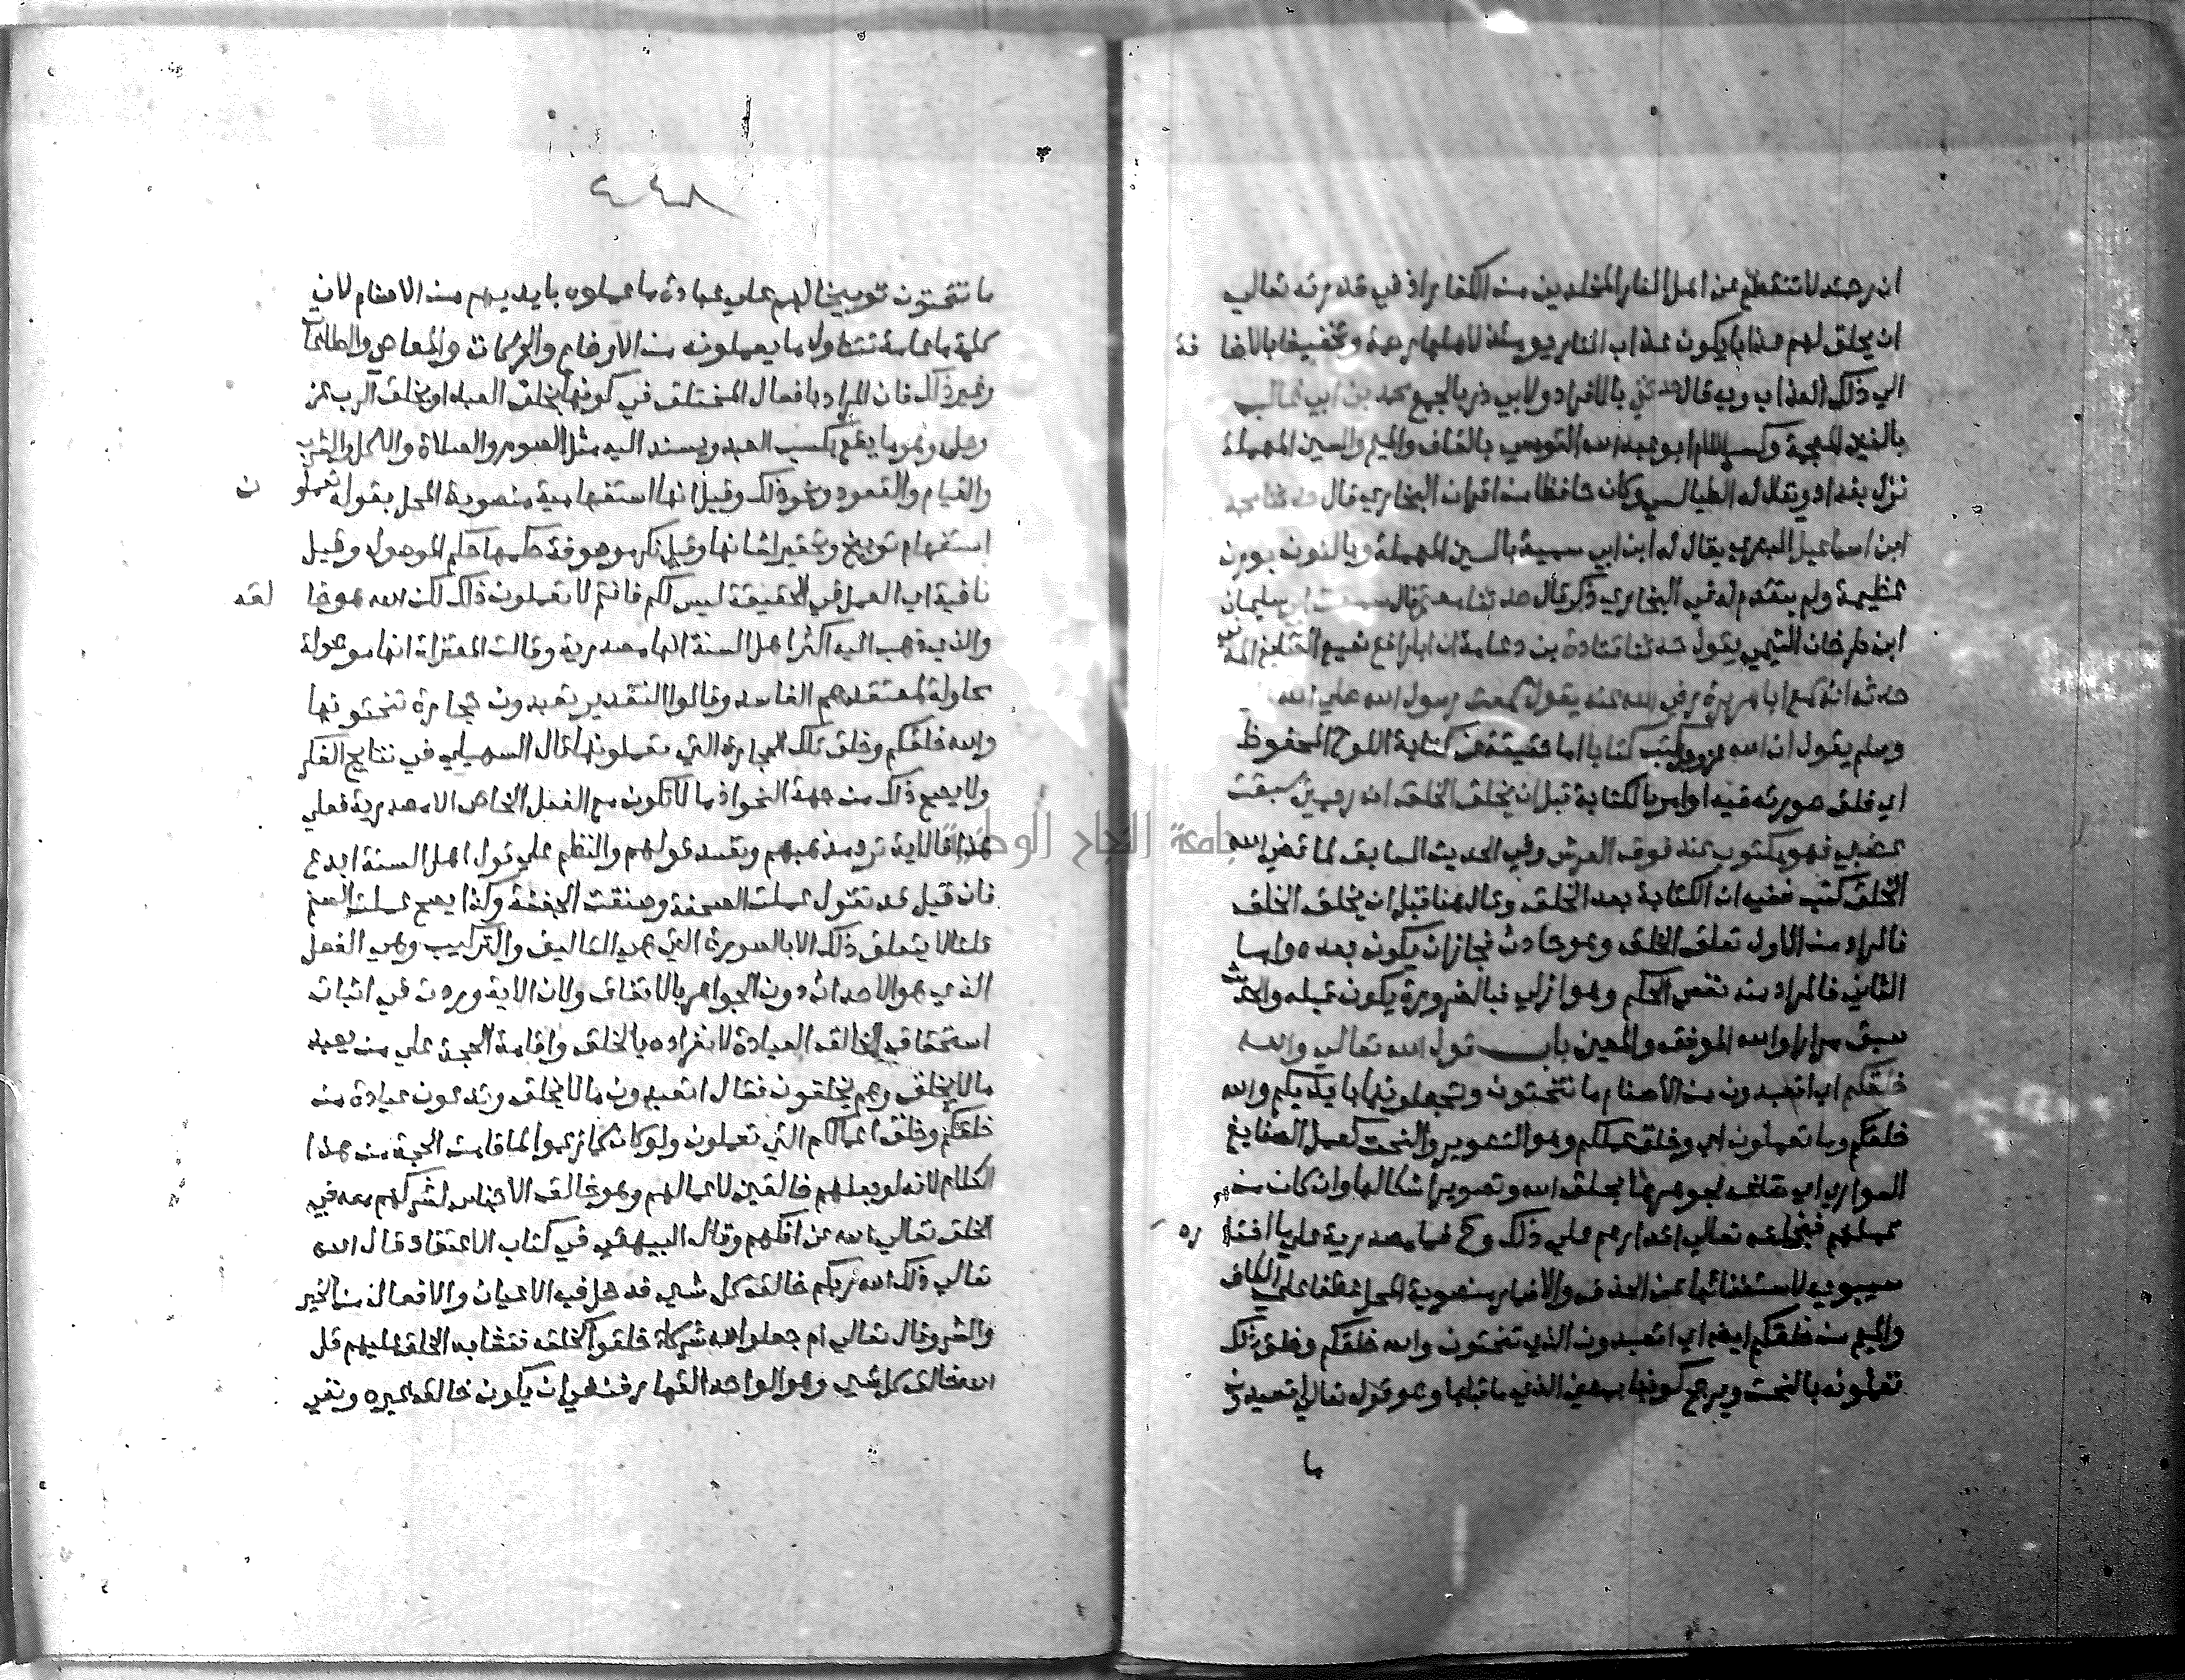 ان رحمته لا تنقطع عن اهل النار المخلدين من الكفار اذ في قدرته تعالي
ان يخلق لهم عذابا يكون عذاب النار يومئذ لاهلها رحمة وتخفيفا بالاضا فة
الي ذلك العذاب وبه قال حدثني بالافراد ولابي ذر بالجمع محمد بن ابي غالب
بالغين المعجمة وكسر اللام ابو عبد الله القومسي بالقاف والميم والسين المهملة
نزل بغداد ويقال له الطيالسي وكان حافظا من اقران البخاري قال حدثنا محمد
ابن اسماعيل البصري يقال له ابن ابي سمينة بالسين المهملة وبالنون بوزن
عظيمة ولم يتقدم له في البخاري ذكر قال حدثنا معتمر قال سمعت ابي سليمان
ابن طرخان التيمي يقول حدثنا قتادة بن دعامة ان ابا رافع نفيع الصايغ المد
حدثه انه سمع ابا هريرة رضي الله عنه يقول سمعت رسول الله صلي الله
وسلم يقول ان الله عز وجل كتب كتابا اما حقيقة عن كتابة اللوح المحفوظ
اي خلق صورته فيه او امر بالكتابة قبل ان يخلق الخلق ان رحمتي سبقت
غضبي فهو مكتوب عنده فوق العرش وفي الحديث السابق لما قضي الله
الخلق كتب ففيه ان الكتابة بعد الخلق وقال هنا قبل ان يخلق الخلق
فالمراد من الاول تعلق الخلق وهو حادث فجاز ان يكون بعده واما
الثاني فالمراد منه نفس الحكم وهو ازلي فبالضرورة يكون قبله والحديث
سبق مرارا والله الموفق والمعين باب قول الله تعالي والله
خلقكم اي اتعبدون من الاصنام ما تنحتون وتجعلونها بايديكم والله
خلقكم وما تعملون اي وخلق عملكم وهو التصوير والنحت كعمل الصايغ
السوار اي صاغه فجوهرها بخلق الله وتصوير اشكالها وان كان من
عملهم فبخلقه تعالي اقدارهم علي ذلك وح فما مصدرية علي ما اختا ره
سيبويه لاستغنائها عن الحذف والاضمار منصوبة المحل عطفا علي الكاف
والميم من خلقكم ايضا اي اتعبدون الذي تنحتون والله خلقكم وخلق ذلك
تعملونه بالنحت ويرجح كونها بمعني الذي ما قبلها وهو قوله تعالي اتعبدون
ما
٤٤٨
ما تنحتون توبيخا لهم علي عبادة ما عملوه بايديهم من الاصنام لان
كلمة ما عامة تتناول ما يعملونه من الاوضاع والحركات والمعاصي والطاعات
وغير ذلك فان المراد بافعال المختلف في كونها بخلق العبد او بخلق الرب عز
وجل وهو ما يقع بكسب العبد ويسند اليه مثل الصوم والصلاة والاكل والشرب
والقيام والقعود ونحو ذلك وقيل انها استفهامية منصوبة المحل بقوله تعملو ن
استفهام توبيخ وتحقير لشانها وقيل نكرة موصوفة حكمها حكم الموصول وقيل
نافية اي العمل في الحقيقة ليس لكم فانتم لا تعملون ذلك لكن الله هو خا لقه
والذي ذهب اليه اكثر اهل السنة انها مصدرية وقالت المعتزلة انها موصولة
محاولة لمعتقدهم الفاسد وقالوا التقدير تعبدون حجارة تنحتونها
والله خلقكم وخلق تلك الحجارة التي تعملونها قال السهيلي في نتايج الفكر
ولا يصح ذلك من جهة النحو اذ ما لا تكون مع الفعل الخاص الا مصدرية فعلي
هذا فالاية ترد مذهبهم وتفسد قولهم والنظم علي قول اهل السنة ابدع
فان قيل قد تقول عملت الصحفة وصنعت الجفنة وكذا يصح عملت الصنم
قلنا لا يتعلق ذلك الا بالصورة التي هي التاليف والتركيب وهي الفعل
الذي هو الاحداث دون الجواهر بالاتفاق ولان الاية وردت في اثبات
استحقاق الخالق العبادة لانفراده بالخلق واقامة الحجة علي من يعبد
ما لا يخلق وهم يخلقون فقال اتعبدون ما لا يخلق وتدعون عبادة من
خلقكم وخلق اعمالكم التي تعملون ولو كان كما زعموا لما قامت الحجة من هذا
الكلام لانه لو جعلهم خالقين لاعمالهم وهو خالق الاجناس لشركهم معه في
الخلق تعالي الله عن افكهم وقال البيهقي في كتاب الاعتقاد قال الله
تعالي ذلك الله ربكم خالق كل شيء فدخل فيه الاعيان والافعال من الخير
والشر وقال تعالي ام جعلوا لله شركاء خلقوا كخلقه فتشابه الخلق عليهم قل
الله خالق كل شيء وهو الواحد القهار فنفي ان يكون خالق غيره ونفي
جامعة النجاح الوطنية